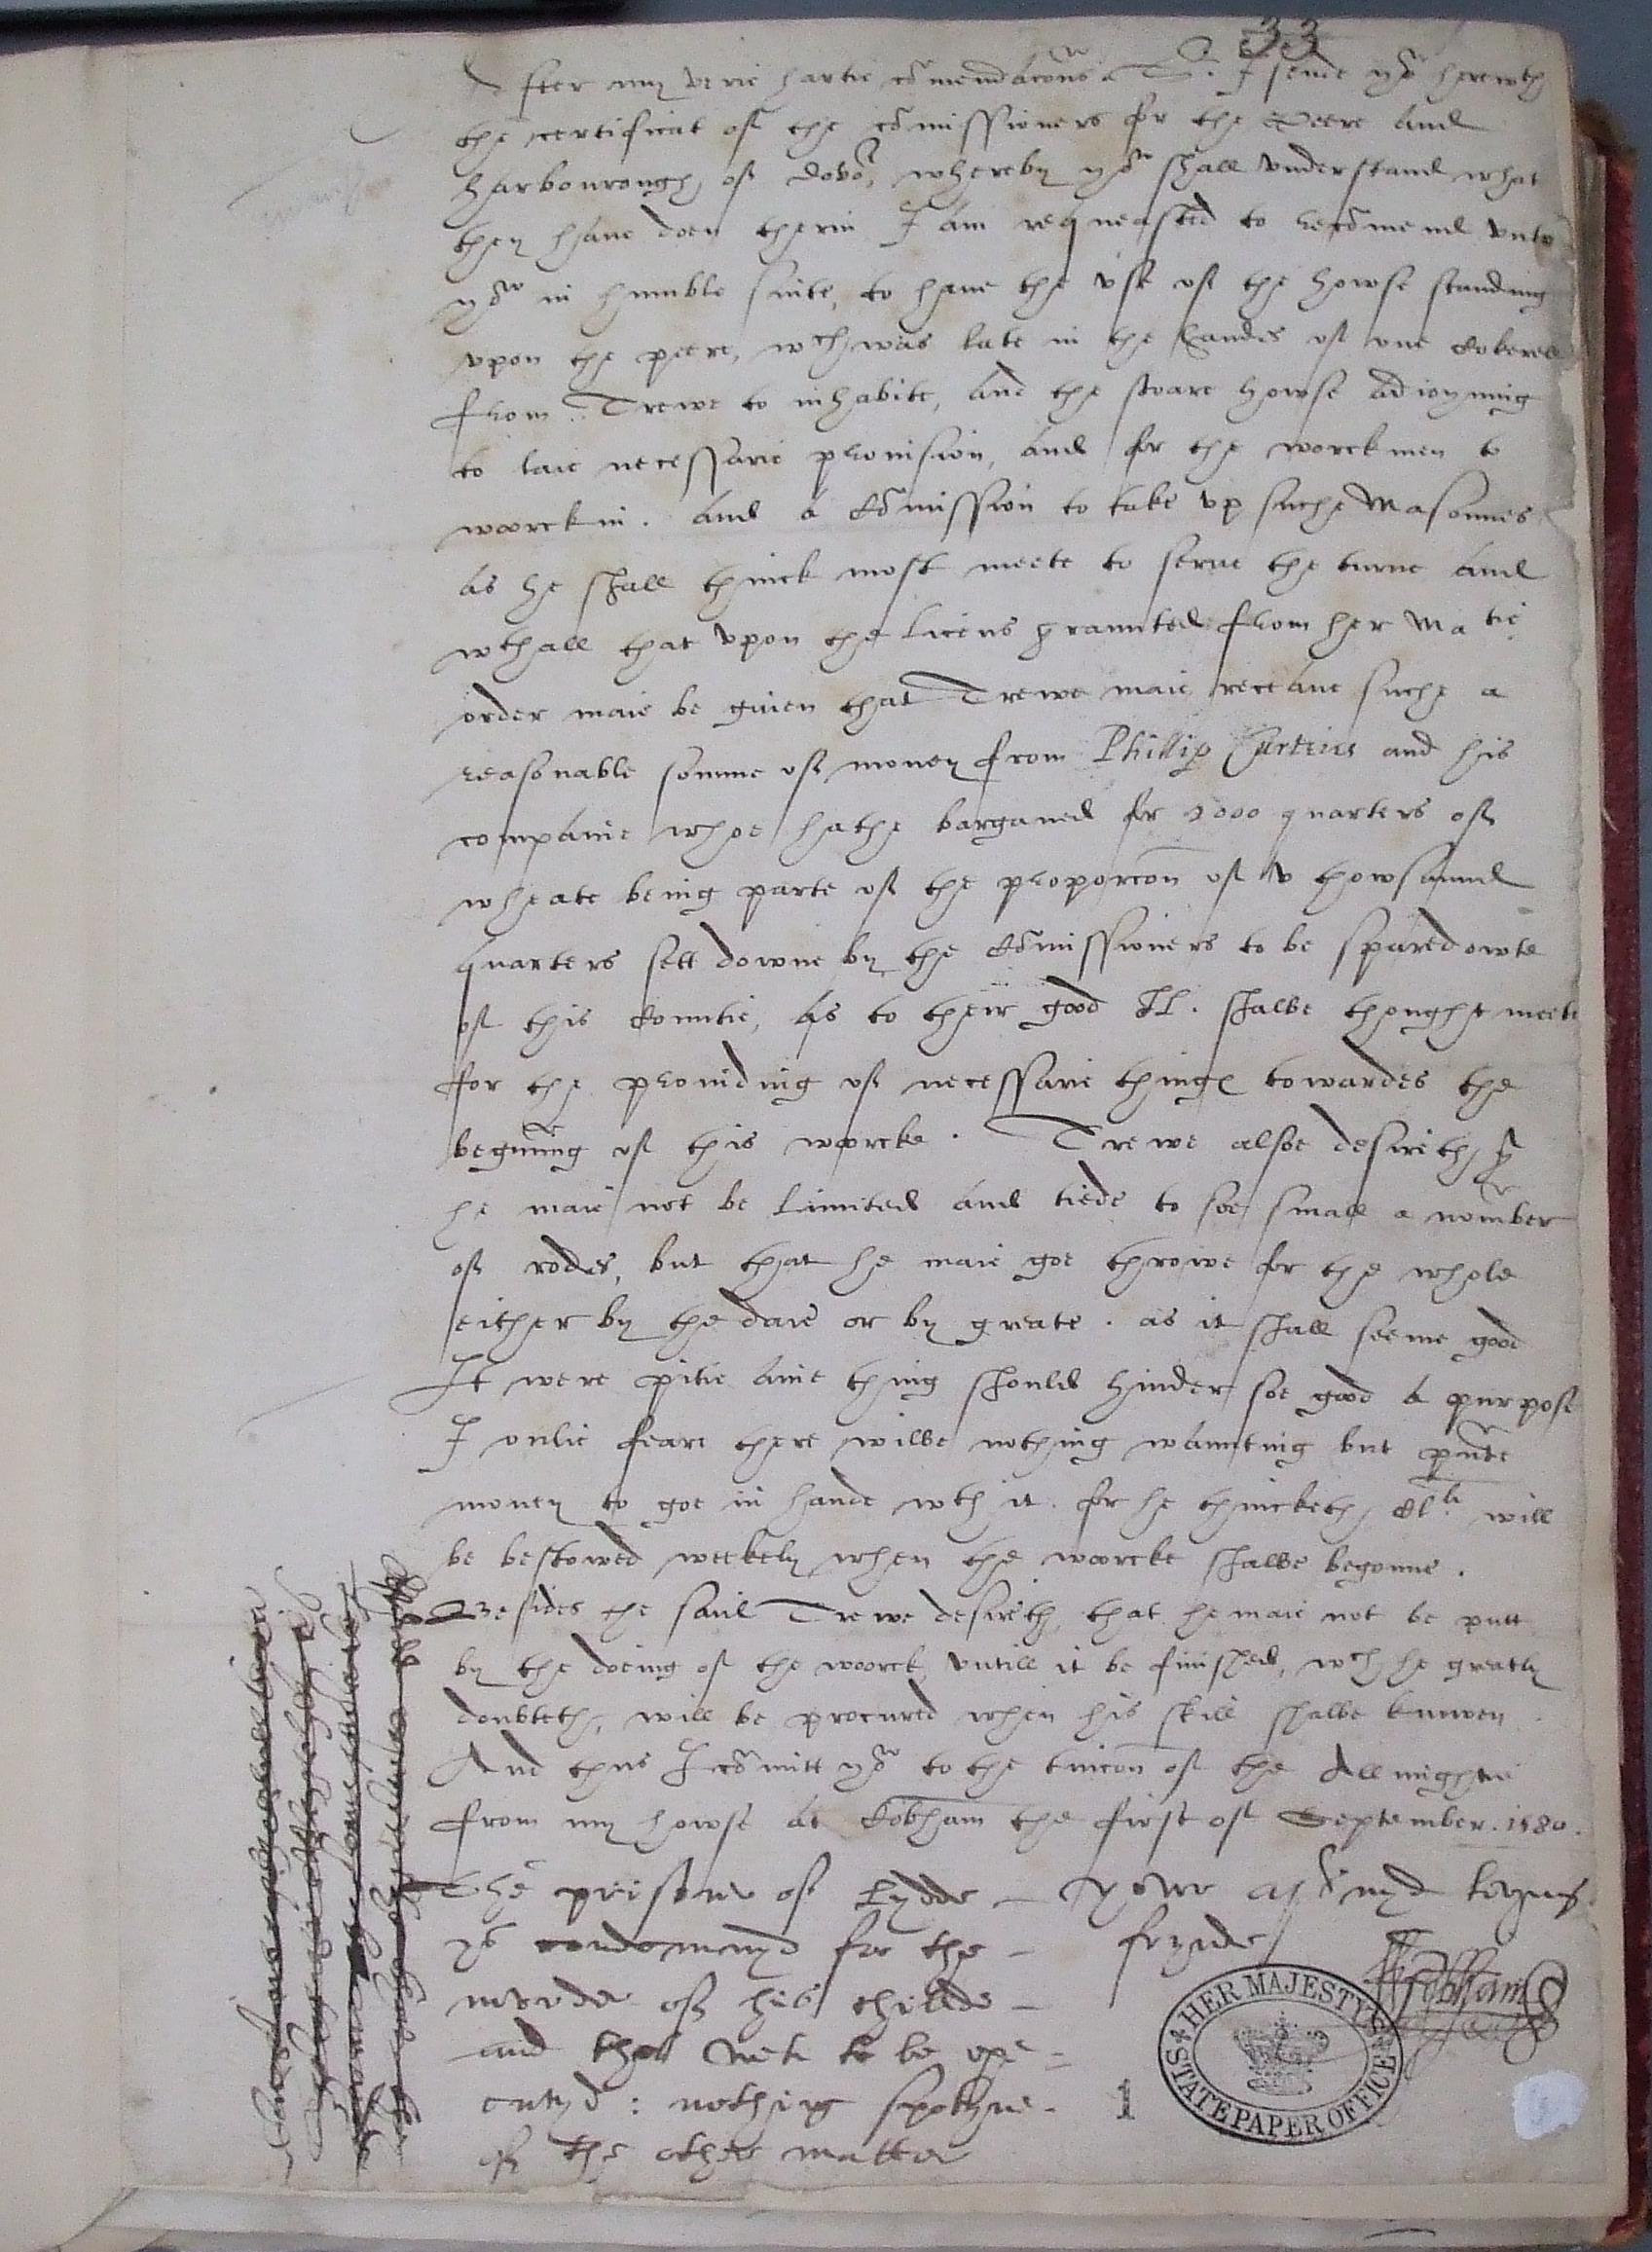 33
After my verie hartie cõmendacõns. S.r I sende yo.u herewth
the certificat of the cõmissioners for the Peere and
harbourough of Dovo.r, whereby yo.u shall understand what
they haue doen therin I am requeasted to recõmend vnto
yo.u in humble suite, to haue the vse of the howse standing
vpon the peere, wch was late in the handes of one
from Trewe to inhabite, and the stoare howse adioyning
to laie necessarie prouision, and for the worckmen to
woorck in. And a Cõmission to take vp suche Masonnes
as he shall thinck most meete to serue the turne and
wthall that vpon the licens graunted from her Matie
order maie be giuen that Trewe maie receaue suche a
reasonable somme of money from Phillip Curteius and his
companie whoe hathe barganed for 2000 quarters of
wheate being parte of the proporcõn of v thowsaund
quarters sett downe by the Cõmissioners to be spared owte
of this Countie, as to their good LL. shalbe thought meete
for the prouiding of necessarie things towardes the
beginning of this woorcke. Trewe alsoe desireth yt
he maie not be limited and tiede to soe small a nomber
of rodes, but that he maie goe throwe for the whole
either by the daie or by greate. as it shall seeme good
It were pitie anie thing should hinder soe good a purpose
I onlie feare there wilbe nothing waunting but pñte
money to goe in hande wth it. for he thincketh Cl.li will
be bestowed weekely when the woorcke shalbe begonne.
Besides the said Trewe desireth, that he maie not be putt
by the doeing of the woorck vntill it be finished, wch he greatly
doubteth, will be procured when his skill shalbe knowen
And thus I cõmitt yo.u to the tuicõn of the Allmightie
from my howse at Cobham the first of September. 1580.
The prisone of Lydde – yowr assuryd lovyng
ys condemnyd for the – frynde
murder of his childe – WCobham
and this weke to be exe=
cutyd : nothing spokyne
of the other matter
1
HER MAJESTY'S
STATE PAPER OFFICE